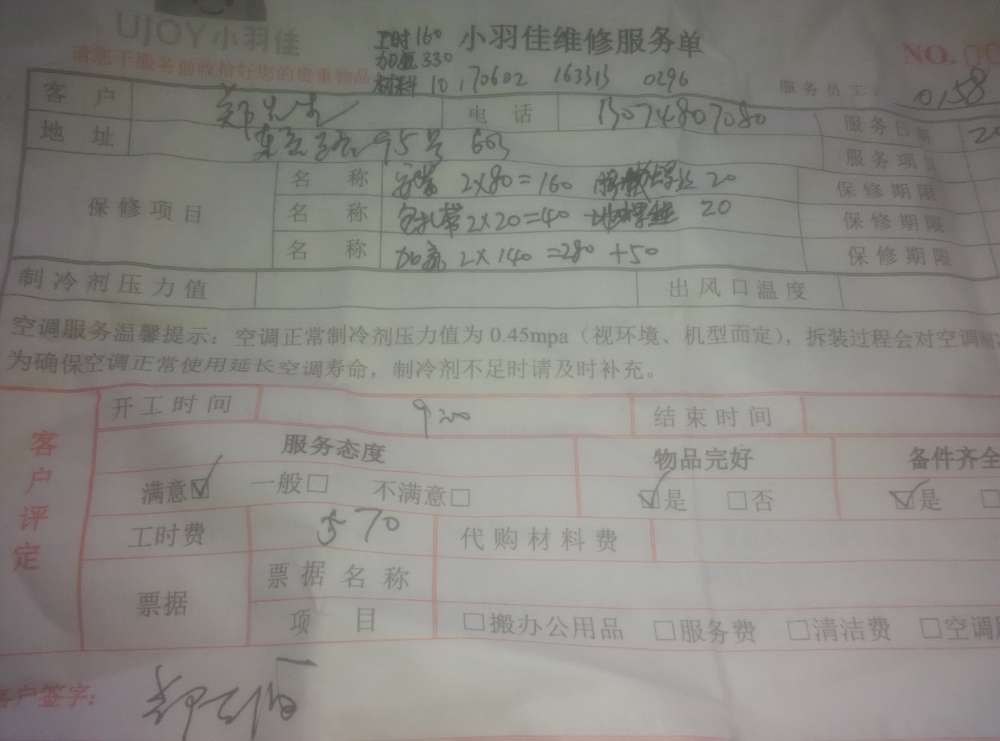 UJOY小羽佳
工时160 小羽佳维修服务单 NO.
加氟330
材料10 170602 163313 0296
0158
客户 电话 13074807080 服务日期
地址 95号 603
保修项目 名称 安装 2×80=160 20 保修期限
名称 包扎带 2×20=40 地螺丝 20 保修期限
名称 加氟 2×140=280 +50 保修期限
制冷剂压力值 出风口温度
空调服务温馨提示：空调正常制冷剂压力值为0.45mpa（视环境、机型而定），拆装过程会对空调
为确保空调正常使用延长空调寿命，制冷剂不足时请及时补充。
客户评定
开工时间 920 结束时间
服务态度 物品完好 备件齐全
满意☑ 一般□ 不满意□ ☑是 □否 ☑是
工时费 570 代购材料费
票据 票据名称
项目 □搬办公用品 □服务费 □清洁费 □空调
客户签字：